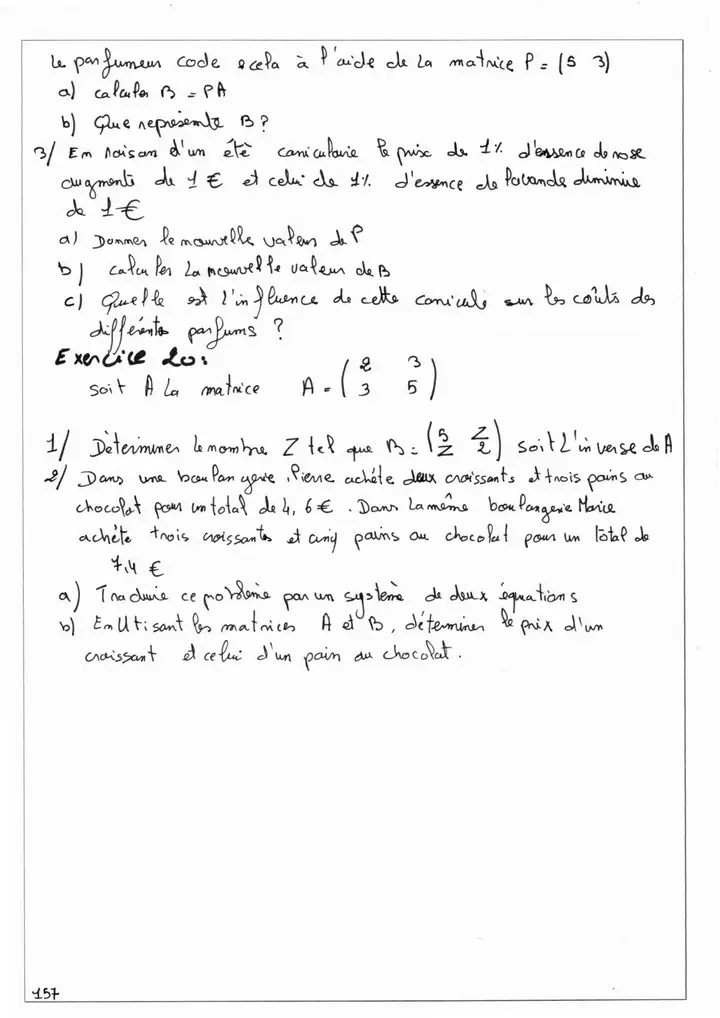 Le parfumeur code cela à l'aide de la matrice P = (5 3)
a) calculer B = PA
b) Que représente B ?
3/ En raison d'un été caniculaire le prix de 1% d'essence de rose
augmente de 1 € et celui de 1% d'essence de lavande diminue
de 1 €
a) Donner le nouvelle valeur de P
b) calculer La nouvelle valeur de B
c) Quelle est l'influence de cette canicule sur les coûts des
différents parfums ?
Exercice 20:
Soit A La matrice A = ( 2 3
3 5 )
1/ Déterminer le nombre Z tel que B = ( 5 Z
Z 2 ) soit L'inverse de A
2/ Dans une boulangerie, Pierre achète deux croissants et trois pains au
chocolat pour un total de 4,6 €. Dans La même boulangerie Marie
achète trois croissants et cinq pains au chocolat pour un total de
7,4 €
a) Traduire ce problème par un système de deux équations
b) En Utisant les matrices A et B, déterminer le prix d'un
croissant et celui d'un pain au chocolat.
157